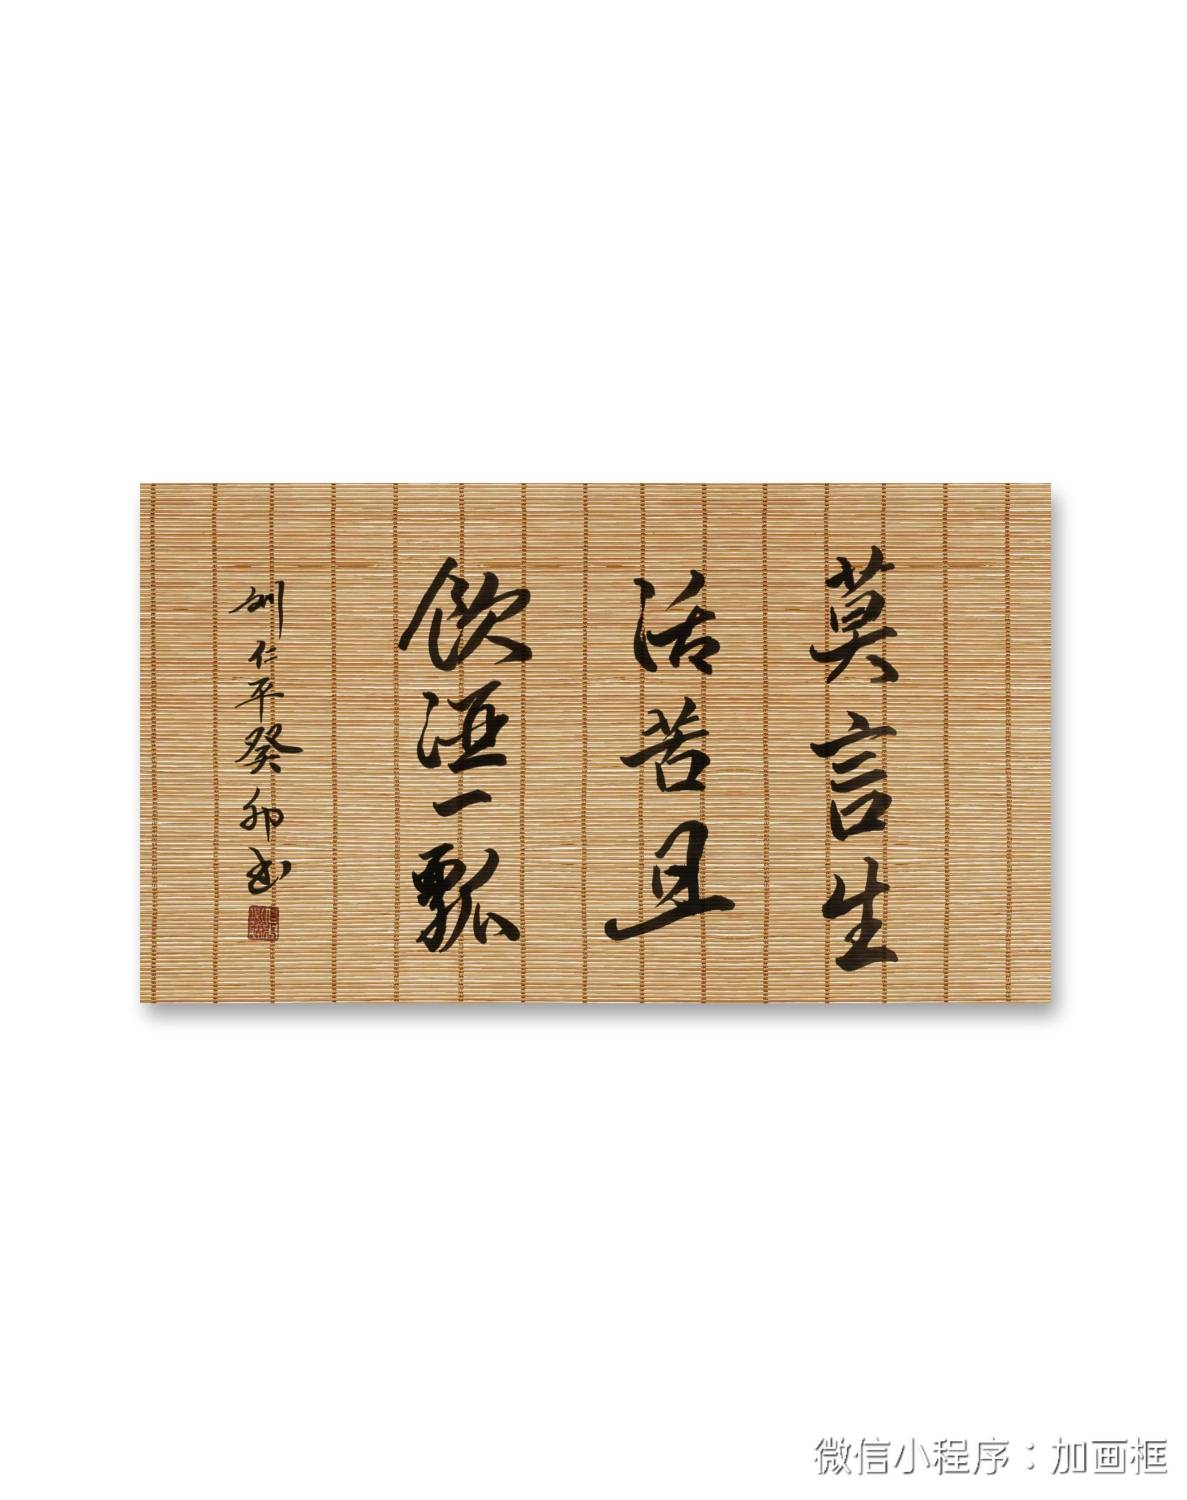 莫言生
活苦且
飲酒一瓢
刘仁平癸卯书
微信小程序：加画框